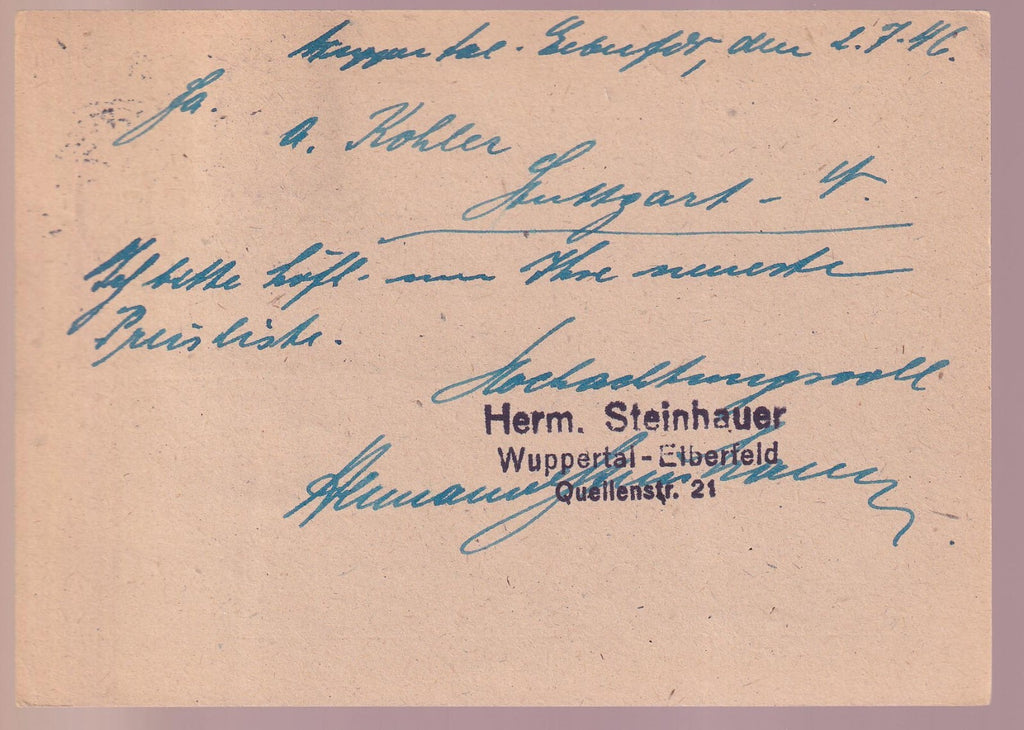 Wuppertal-Elberfeld, den 2.7.46.
Fa.
A. Kohler
Stuttgart - W.
Ich bitte höfl. um Ihre neueste
Preisliste.
Hochachtungsvoll
Herm. Steinhauer
Wuppertal-Elberfeld
Quellenstr. 21
Hermann Steinhauer